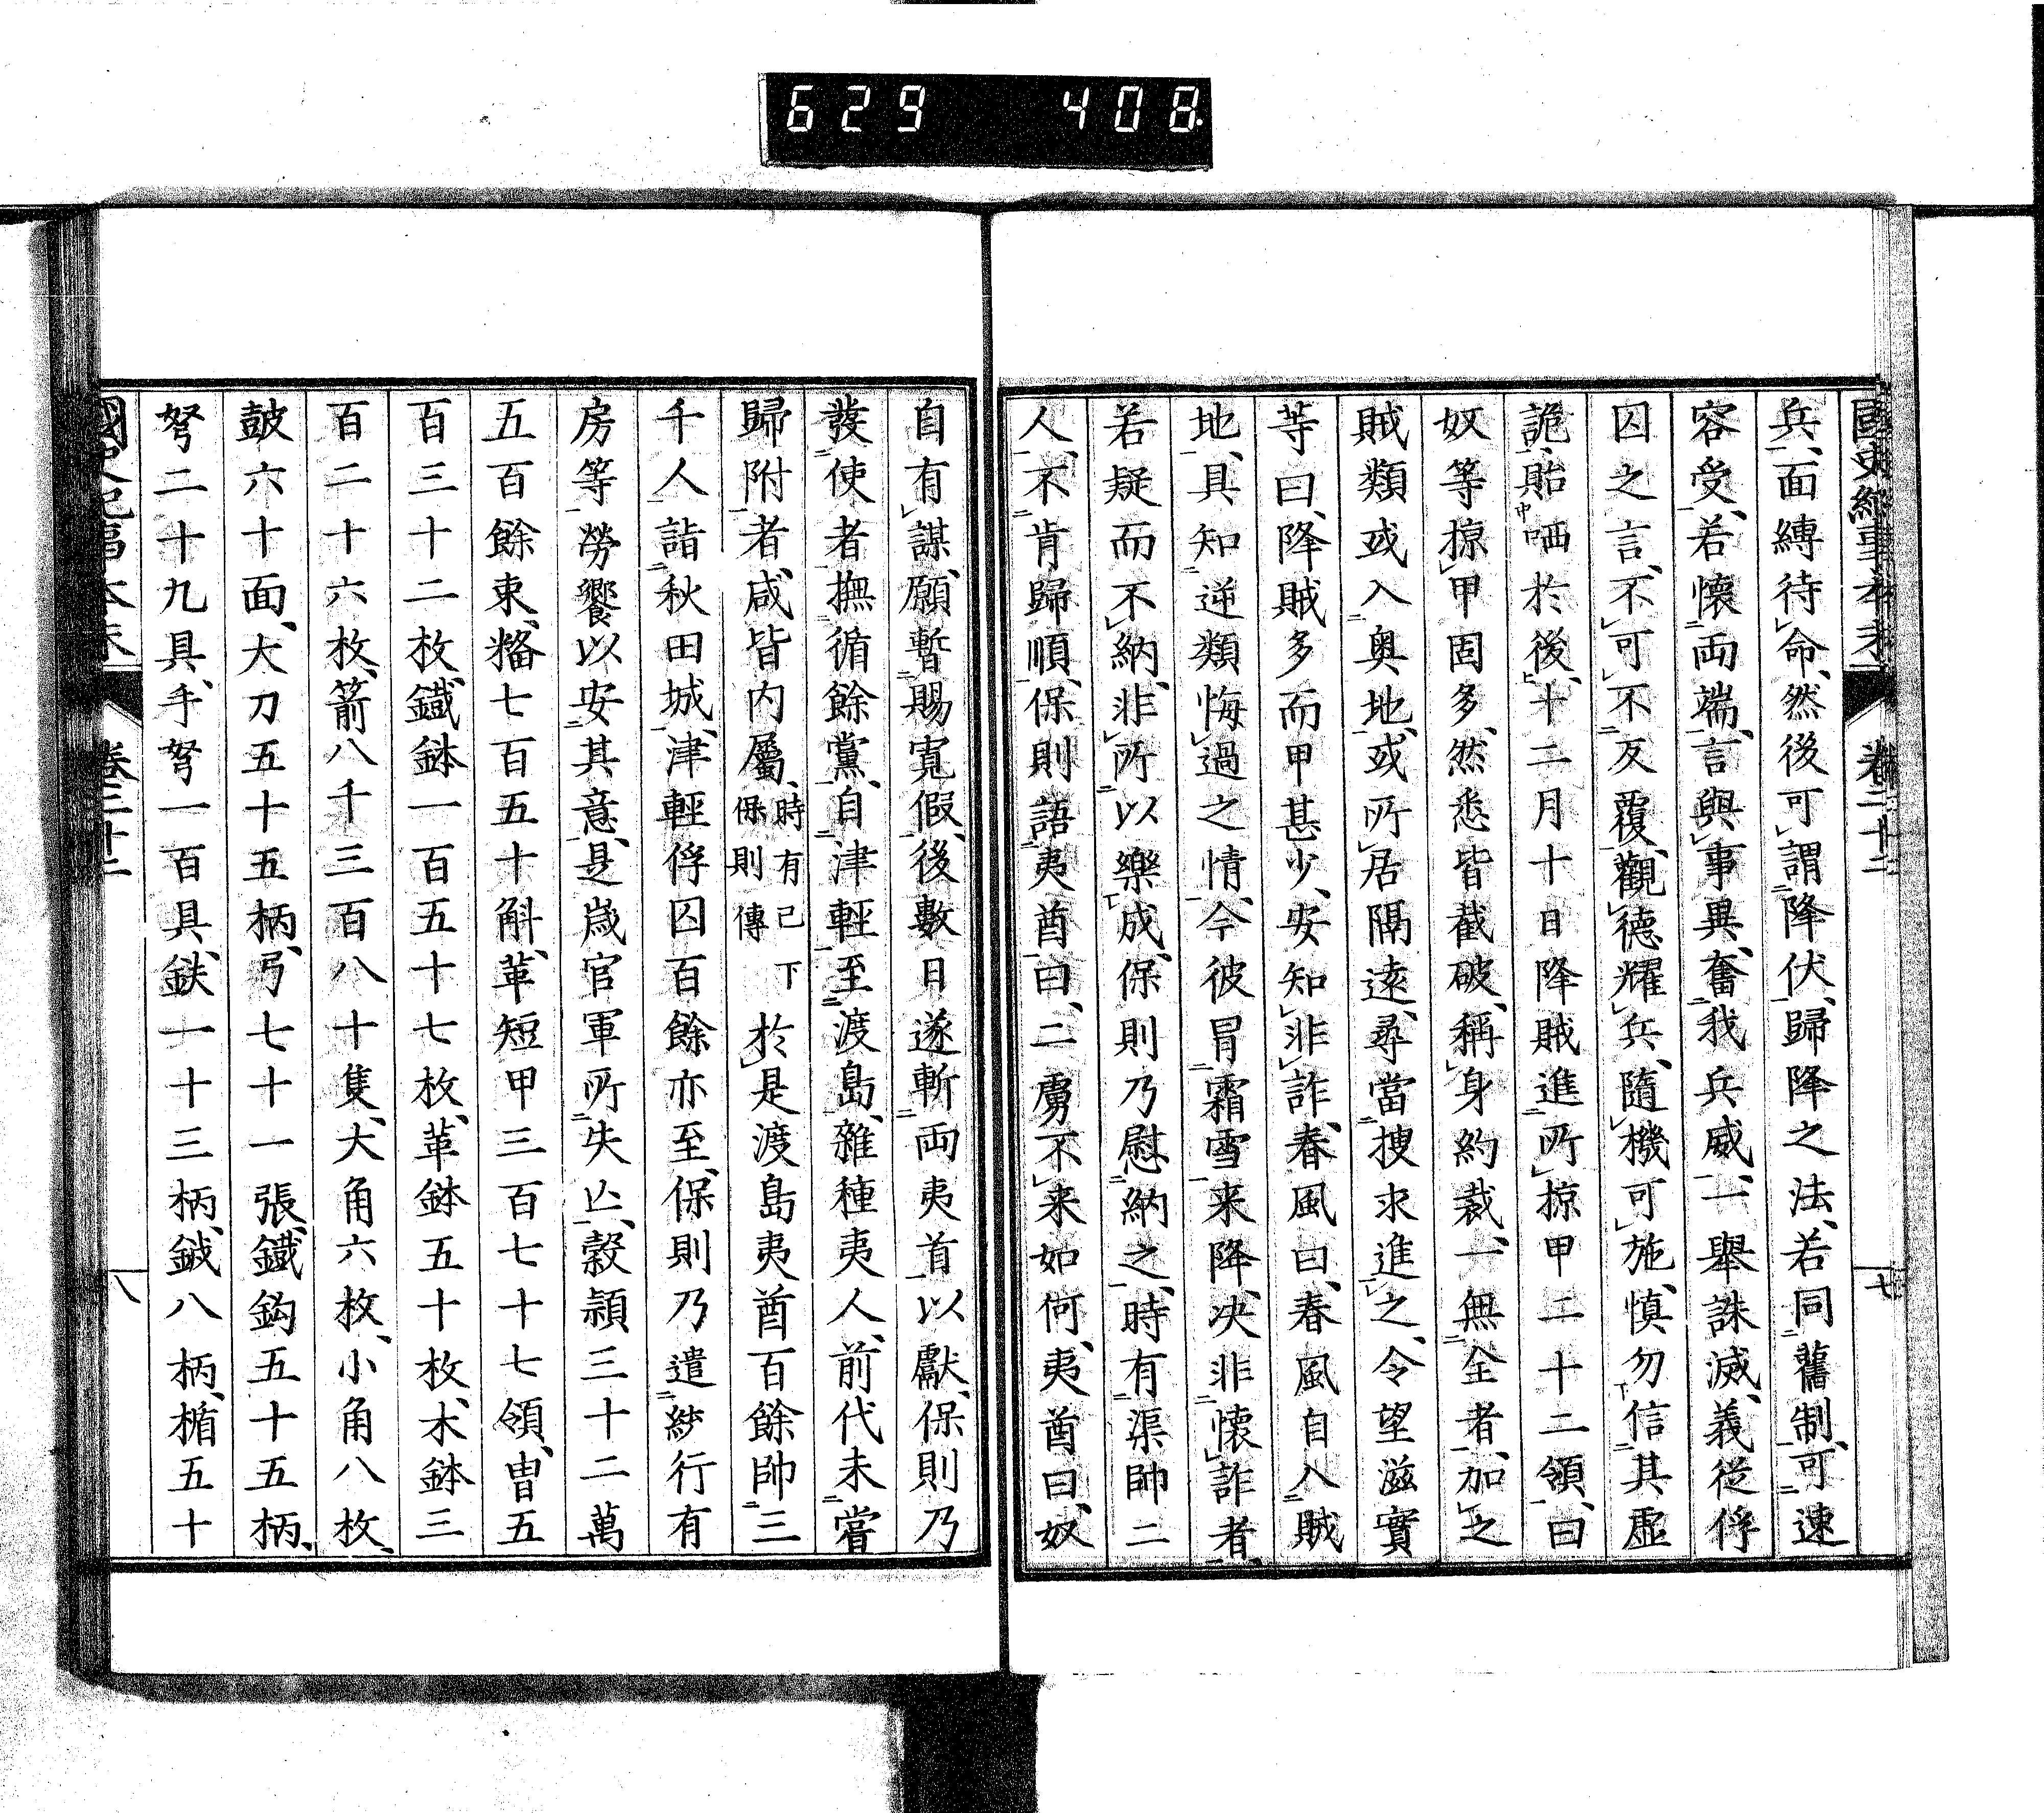 629 408
國史紀事本末 卷二十二 七
兵、面縛待命、然後可謂降伏、歸降之法、若同舊制、可速
容受、若懷両端、言與事異、奮我兵威、一舉誅滅、義從俘
囚之言、不可不反覆、觀德耀兵、隨機可施、慎勿信其虛
詭、貽哂於後、十二月十日降賊進所掠甲二十二領、曰
奴等掠甲固多、然悉皆截破、稱身約裁、一無全者、加之
賊類或入奥地、或所居隔遠、尋當捜求進之、令望滋實
等曰、降賊多而甲甚少、安知非詐、春風曰、春風自入賊
地、具知逆類悔過之情、今彼冒霜雪来降、决非懷詐者、
若疑而不納、非所以樂成、保則乃慰納之、時有渠帥二
人、不肯歸順、保則語夷酋曰、二虜不来如何、夷酋曰、奴
自有謀、願暫賜寬假、後數日遂斬両夷首以獻、保則乃
發使者撫循餘黨、自津軽至渡島、雜種夷人、前代未嘗
歸附者、咸皆内屬、時有已下保則傳 於是渡島夷酋百餘帥三
千人詣秋田城、津輕俘囚百餘亦至、保則乃遣紗行有
房等勞饗以安其意、是歳官軍所失亾、穀頴三十二萬
五百餘束、糒七百五十斛、革短甲三百七十七領、冑五
百三十二枚、鐡鉢一百五十七枚、革鉢五十枚、木鉢三
百二十六枚、箭八千三百八十隻、大角六枚、小角八枚、
鼓六十面、大刀五十五柄、弓七十一張、鐡鈎五十五柄、
弩二十九具、手弩一百具、鈇一十三柄、鉞八柄、楯五十
國史紀事本末 卷二十二 八